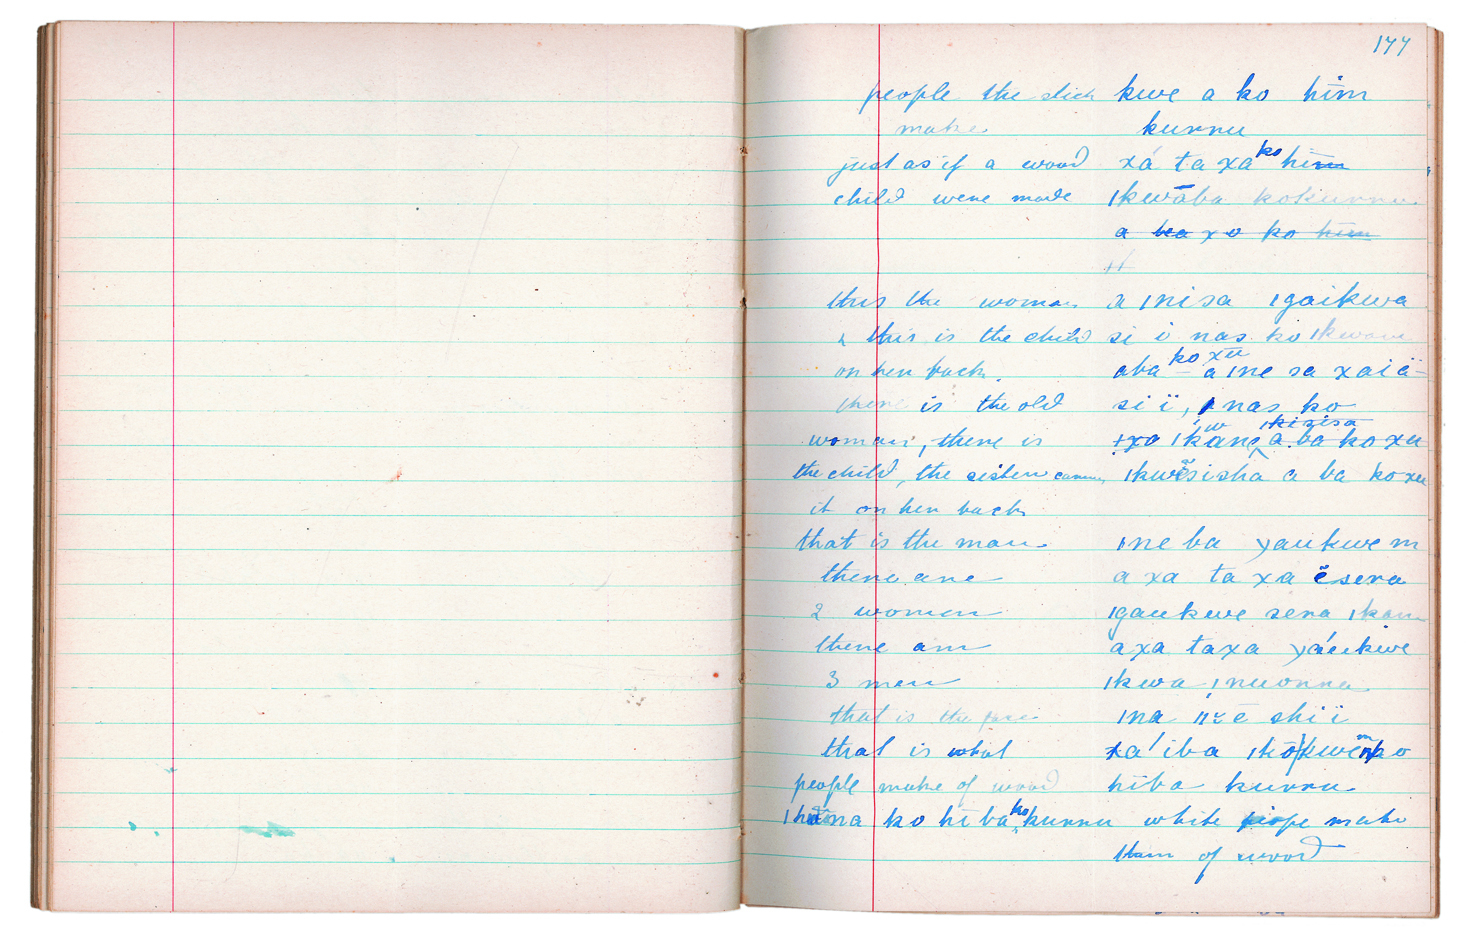 177
people the stick kwe a ko hīm
make kurru
just as if a wood xá ta xa ko hīm
child were made ıkwāba kokurru
a ba xo ko hīm
this the woman a ınisa ıgaikwa
& this is the child si i nas ko ıkwane
on her back. aba ko xu a ıne sa xaiä
there is the old si ï, ınas ko
woman, there is ıxa ıkane a ba ko xu
the child, the sister carries ıkwĕsisha a ba ko xu
it on her back
that is the man ıne ba yaukwe m
there are a xa ta xa ĕsera
2 women ıgaukwe sera ıkam
there are axa taxa yáukwe
3 men ıkwa ınuonna
that is the ına shïï
that is what xa'iba ko
people make of wood hïba kurru
ko hï ba ko kurru white make
them of wood